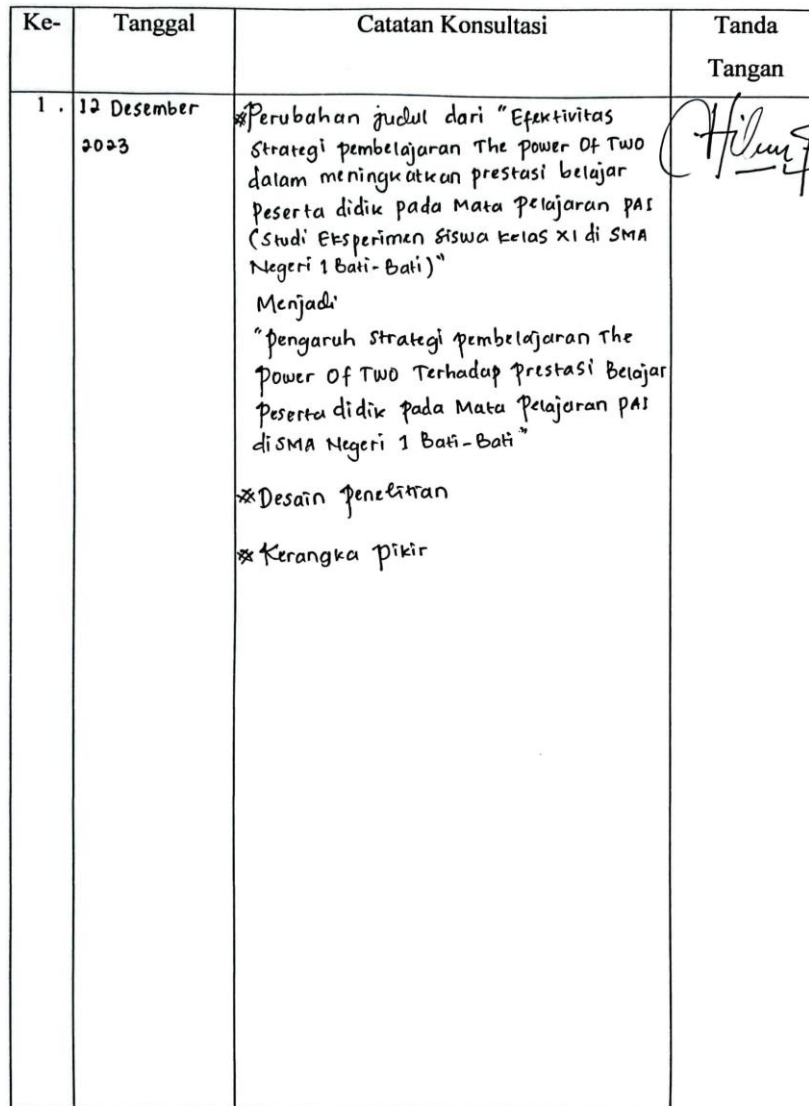 Ke- Tanggal Catatan Konsultasi Tanda
Tangan
1 . 12 Desember
2023
※Perubahan judul dari "Efektivitas
Strategi pembelajaran The power Of Two
dalam meningkatkan prestasi belajar
Peserta didik pada Mata Pelajaran PAI
(Studi Eksperimen Siswa kelas XI di SMA
Negeri 1 Bati-Bati)"
Menjadi
"pengaruh Strategi pembelajaran The
Power Of Two Terhadap prestasi Belajar
Peserta didik pada Mata Pelajaran PAI
di SMA Negeri 1 Bati-Bati"
※Desain penelitian
※ Kerangka pikir